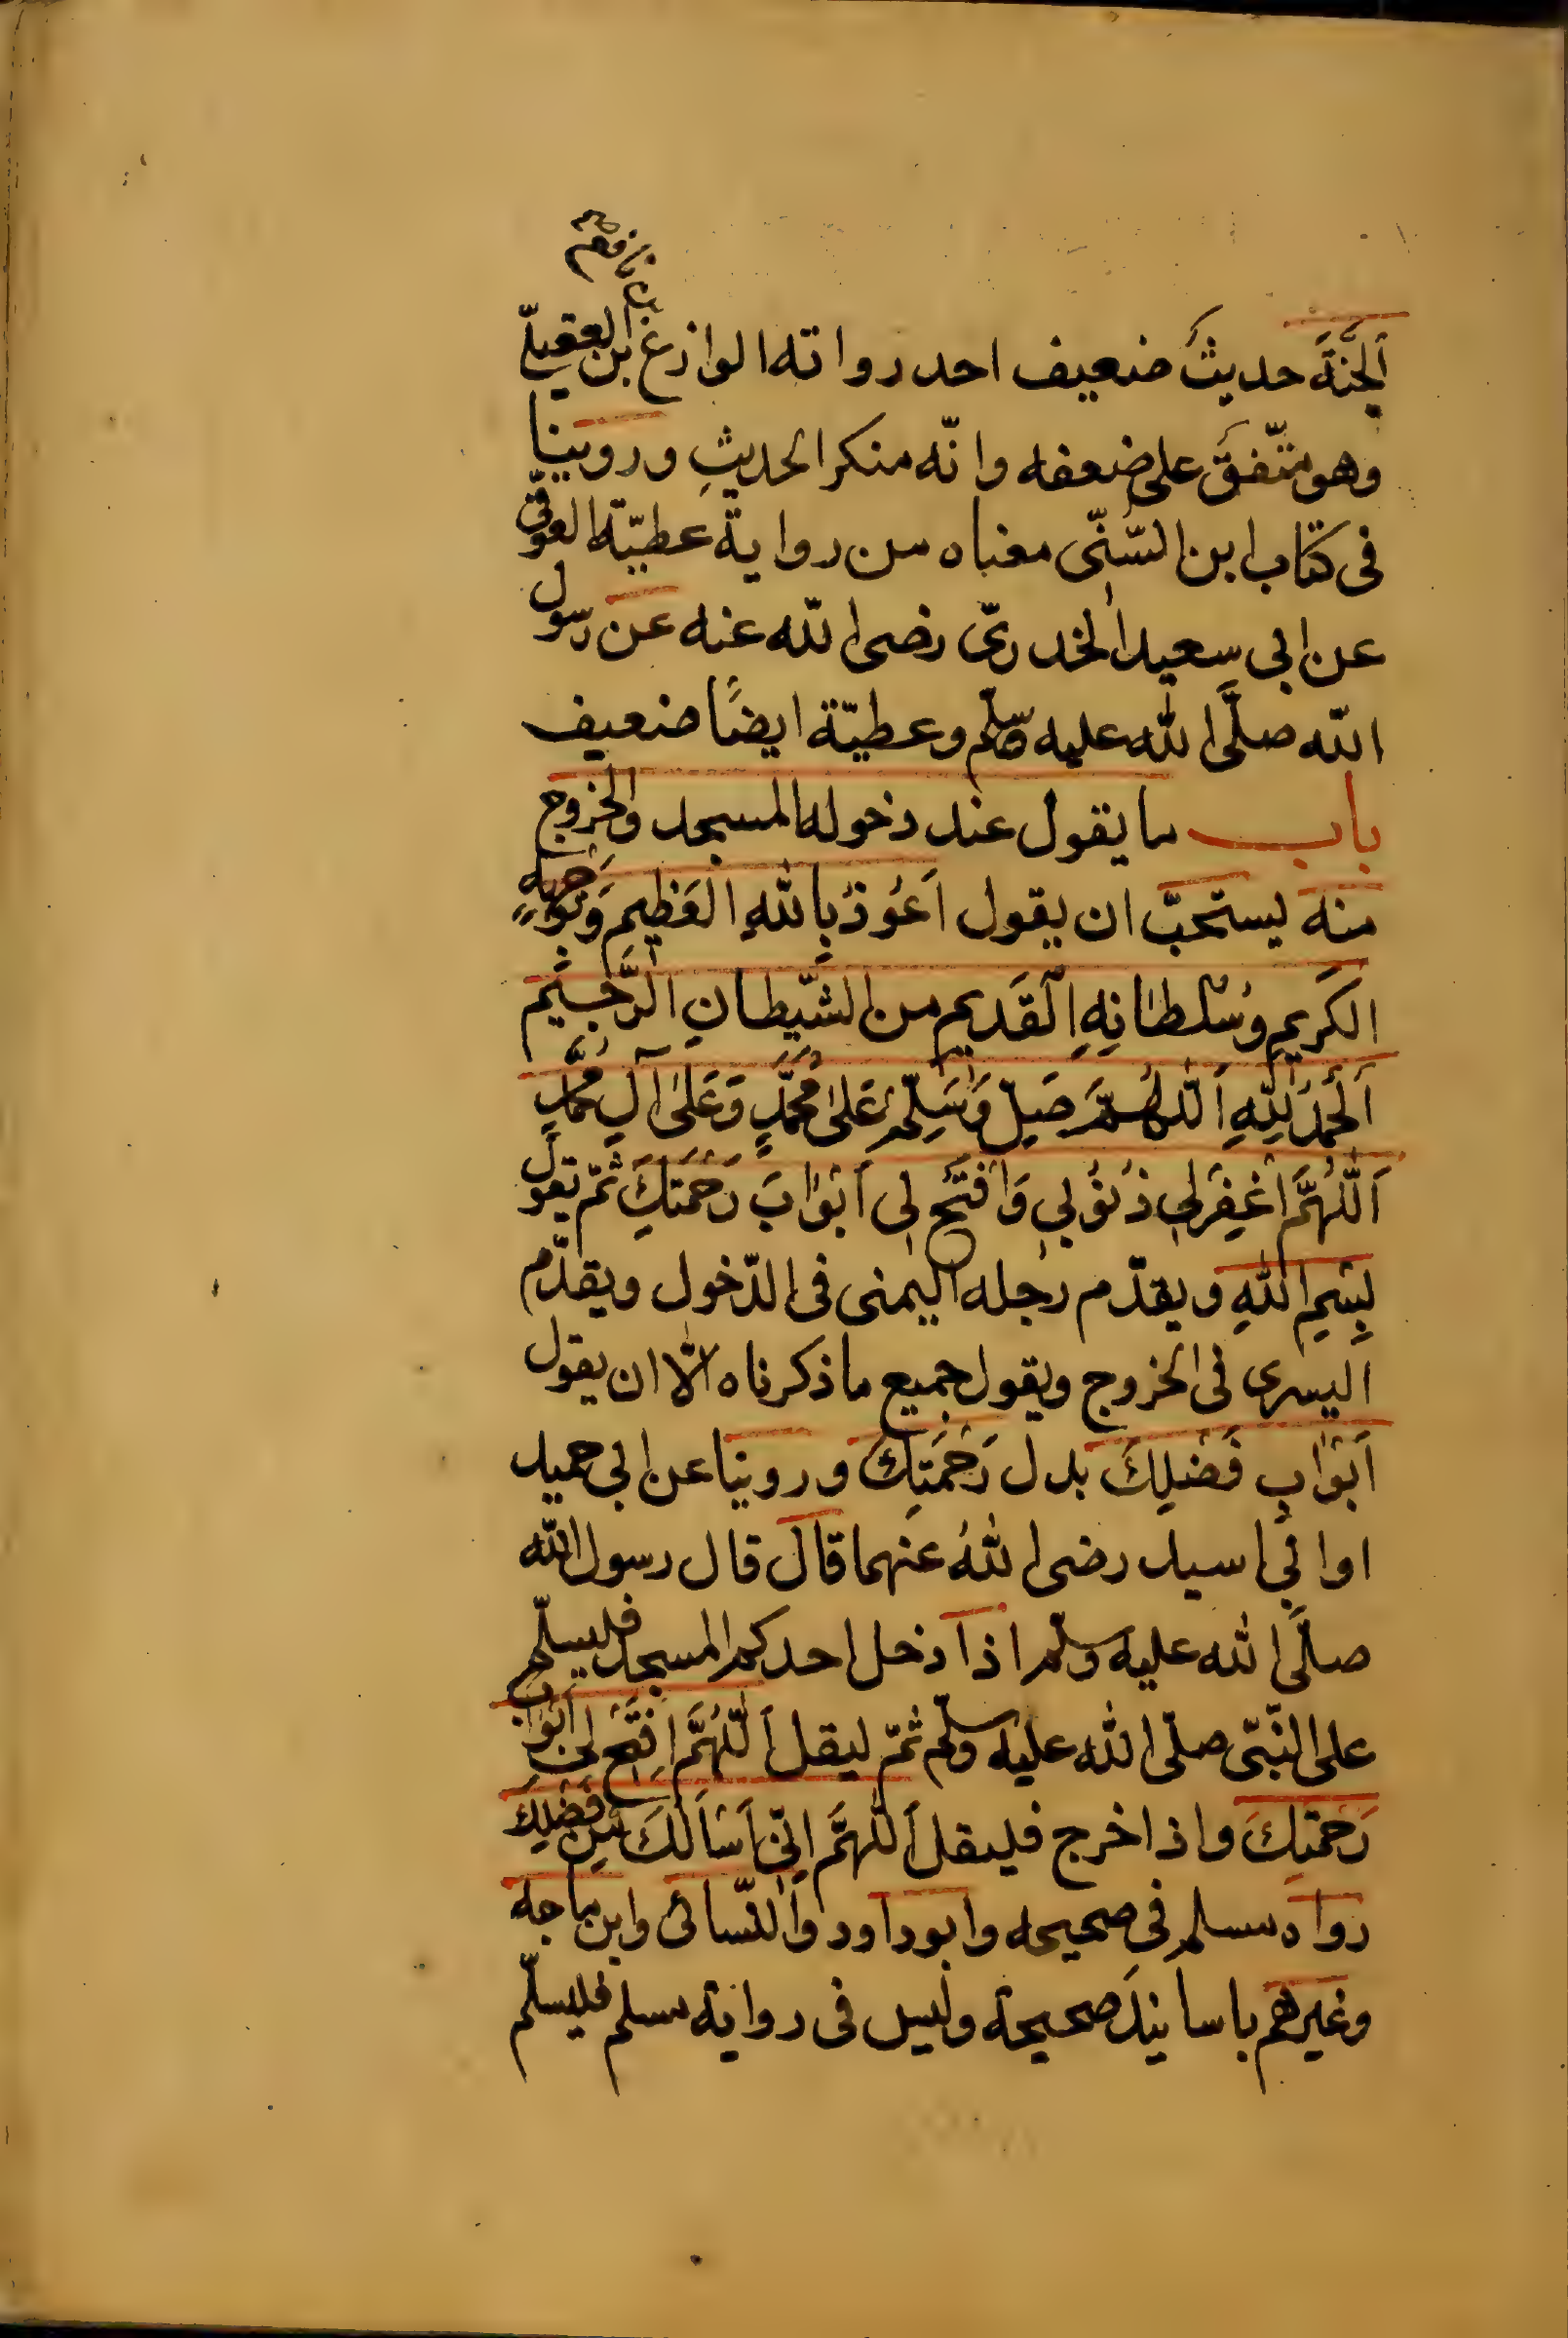 اَلجَنَّةَ حديثٌ ضعيف احد رواته الوازع بن العقيلىّ
وهو متّفقٌ على ضعفه وانّه منكر الحديثِ وروينا
فى كتاب ابن السّنّى معناه من رواية عطيّة العوفّى
عن ابى سعيد الخدرىّ رضى الله عنه عن رسول
الله صلَّى الله عليه وسلّم وعطيّة ايضًا ضعيف
باب ما يقول عند دخوله المسجد والخروج
منه يستحبّ ان يقول اَعُوذُ بِاللهِ العَظِيمِ وَبِوَجهِهِ
الكَرِيمِ وَسُلْطَانِهِ اِلْقَدِيمِ من الشَّيطانِ الرَّجِيْمِ
اَلْحَمْدُ لِلّهِ اَللّهُمَّ صَلِّ وَسَلِّمْ عَلىٰ مُحَمَّدٍ وَعَلىٰ آلِ مُحَمَّدٍ
اَللّهُمَّ اغْفِرْلِى ذُنُوْبِى وَافْتَحْ لِى اَبْوَابَ رَحْمَتِكَ ثمّ تقول
بِسْمِ اللهِ ويقدّم رجله اليمنى فى الدّخول ويقدّم
اليسرى فى الخروج ويقول جميع ما ذكرناه الّا ان يقول
اَبْوَاب فَضْلِكَ بدل رَحْمَتِكَ وروينا عن ابى حميد
او ابى اسيد رضى اللهُ عنهما قال قال رسول الله
صلَّى الله عليه وسلّم اذا دخل احدكم المسجد فليسلّم
على النّبّى صلّى الله عليه وسلّم ثمّ ليقل اَللّهُمَّ افْتَحْ لِى اَبْوَابَ
رَحْمَتِكَ واذا خرج فليقل اَللّهُمَّ اِنِّى اَسْاَلُكَ مِنْ فَضْلِكَ
رواه مسلم فى صحيحه وابو داود والنّسائى وابن ماجه
وغيرهم باسانيد صحيحة وليس فى رواية مسلم فليسلّم